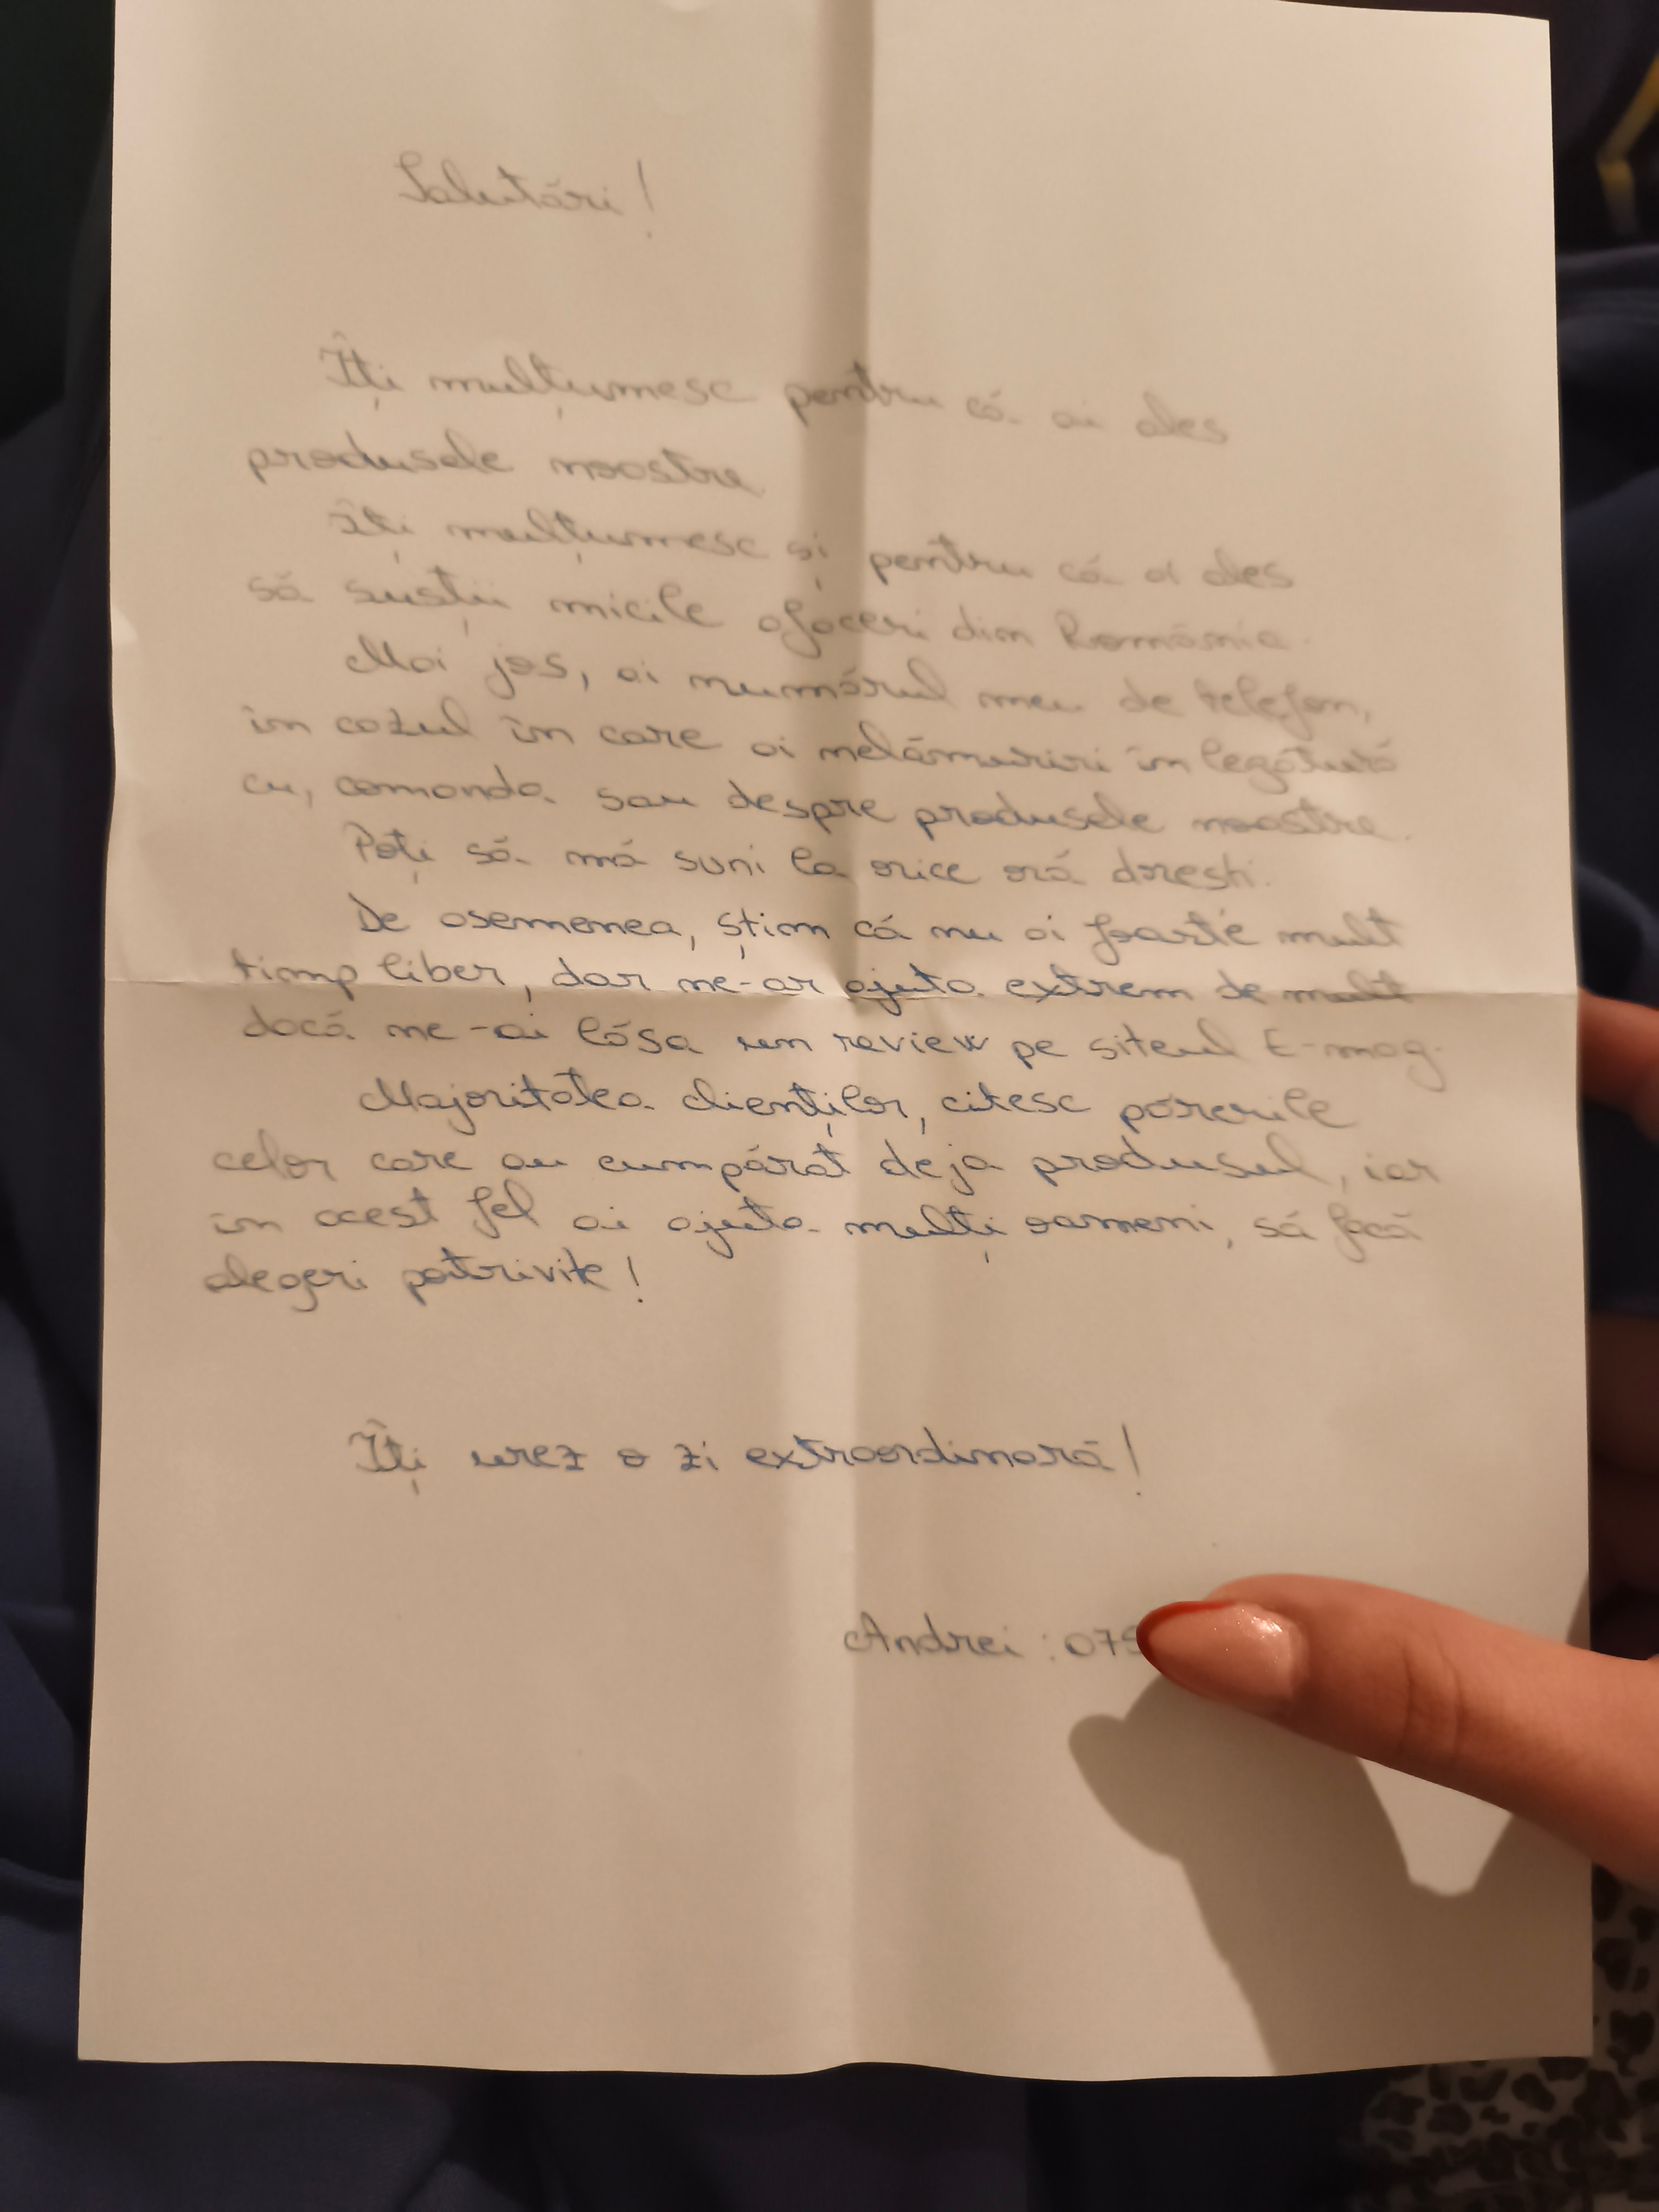 Salutări!
Îți mulțumesc pentru că ai ales
produsele noastre.
Îți mulțumesc și pentru că ai ales
să susții micile afaceri din România.
Mai jos, ai numărul meu de telefon,
în cazul în care ai nelămuriri în legătură
cu, comanda sau despre produsele noastre.
Poți să mă suni la orice oră dorești.
De asemenea, știm că nu ai foarte mult
timp liber, dar ne-ar ajuta extrem de mult
dacă ne-ai lăsa un review pe siteul E-mag.
Majoritatea clienților, citesc părerile
celor care au cumpărat deja produsul, iar
în acest fel ai ajuta mulți oameni, să facă
alegeri potrivite!
Îți urez o zi extraordinară!
Andrei : 075